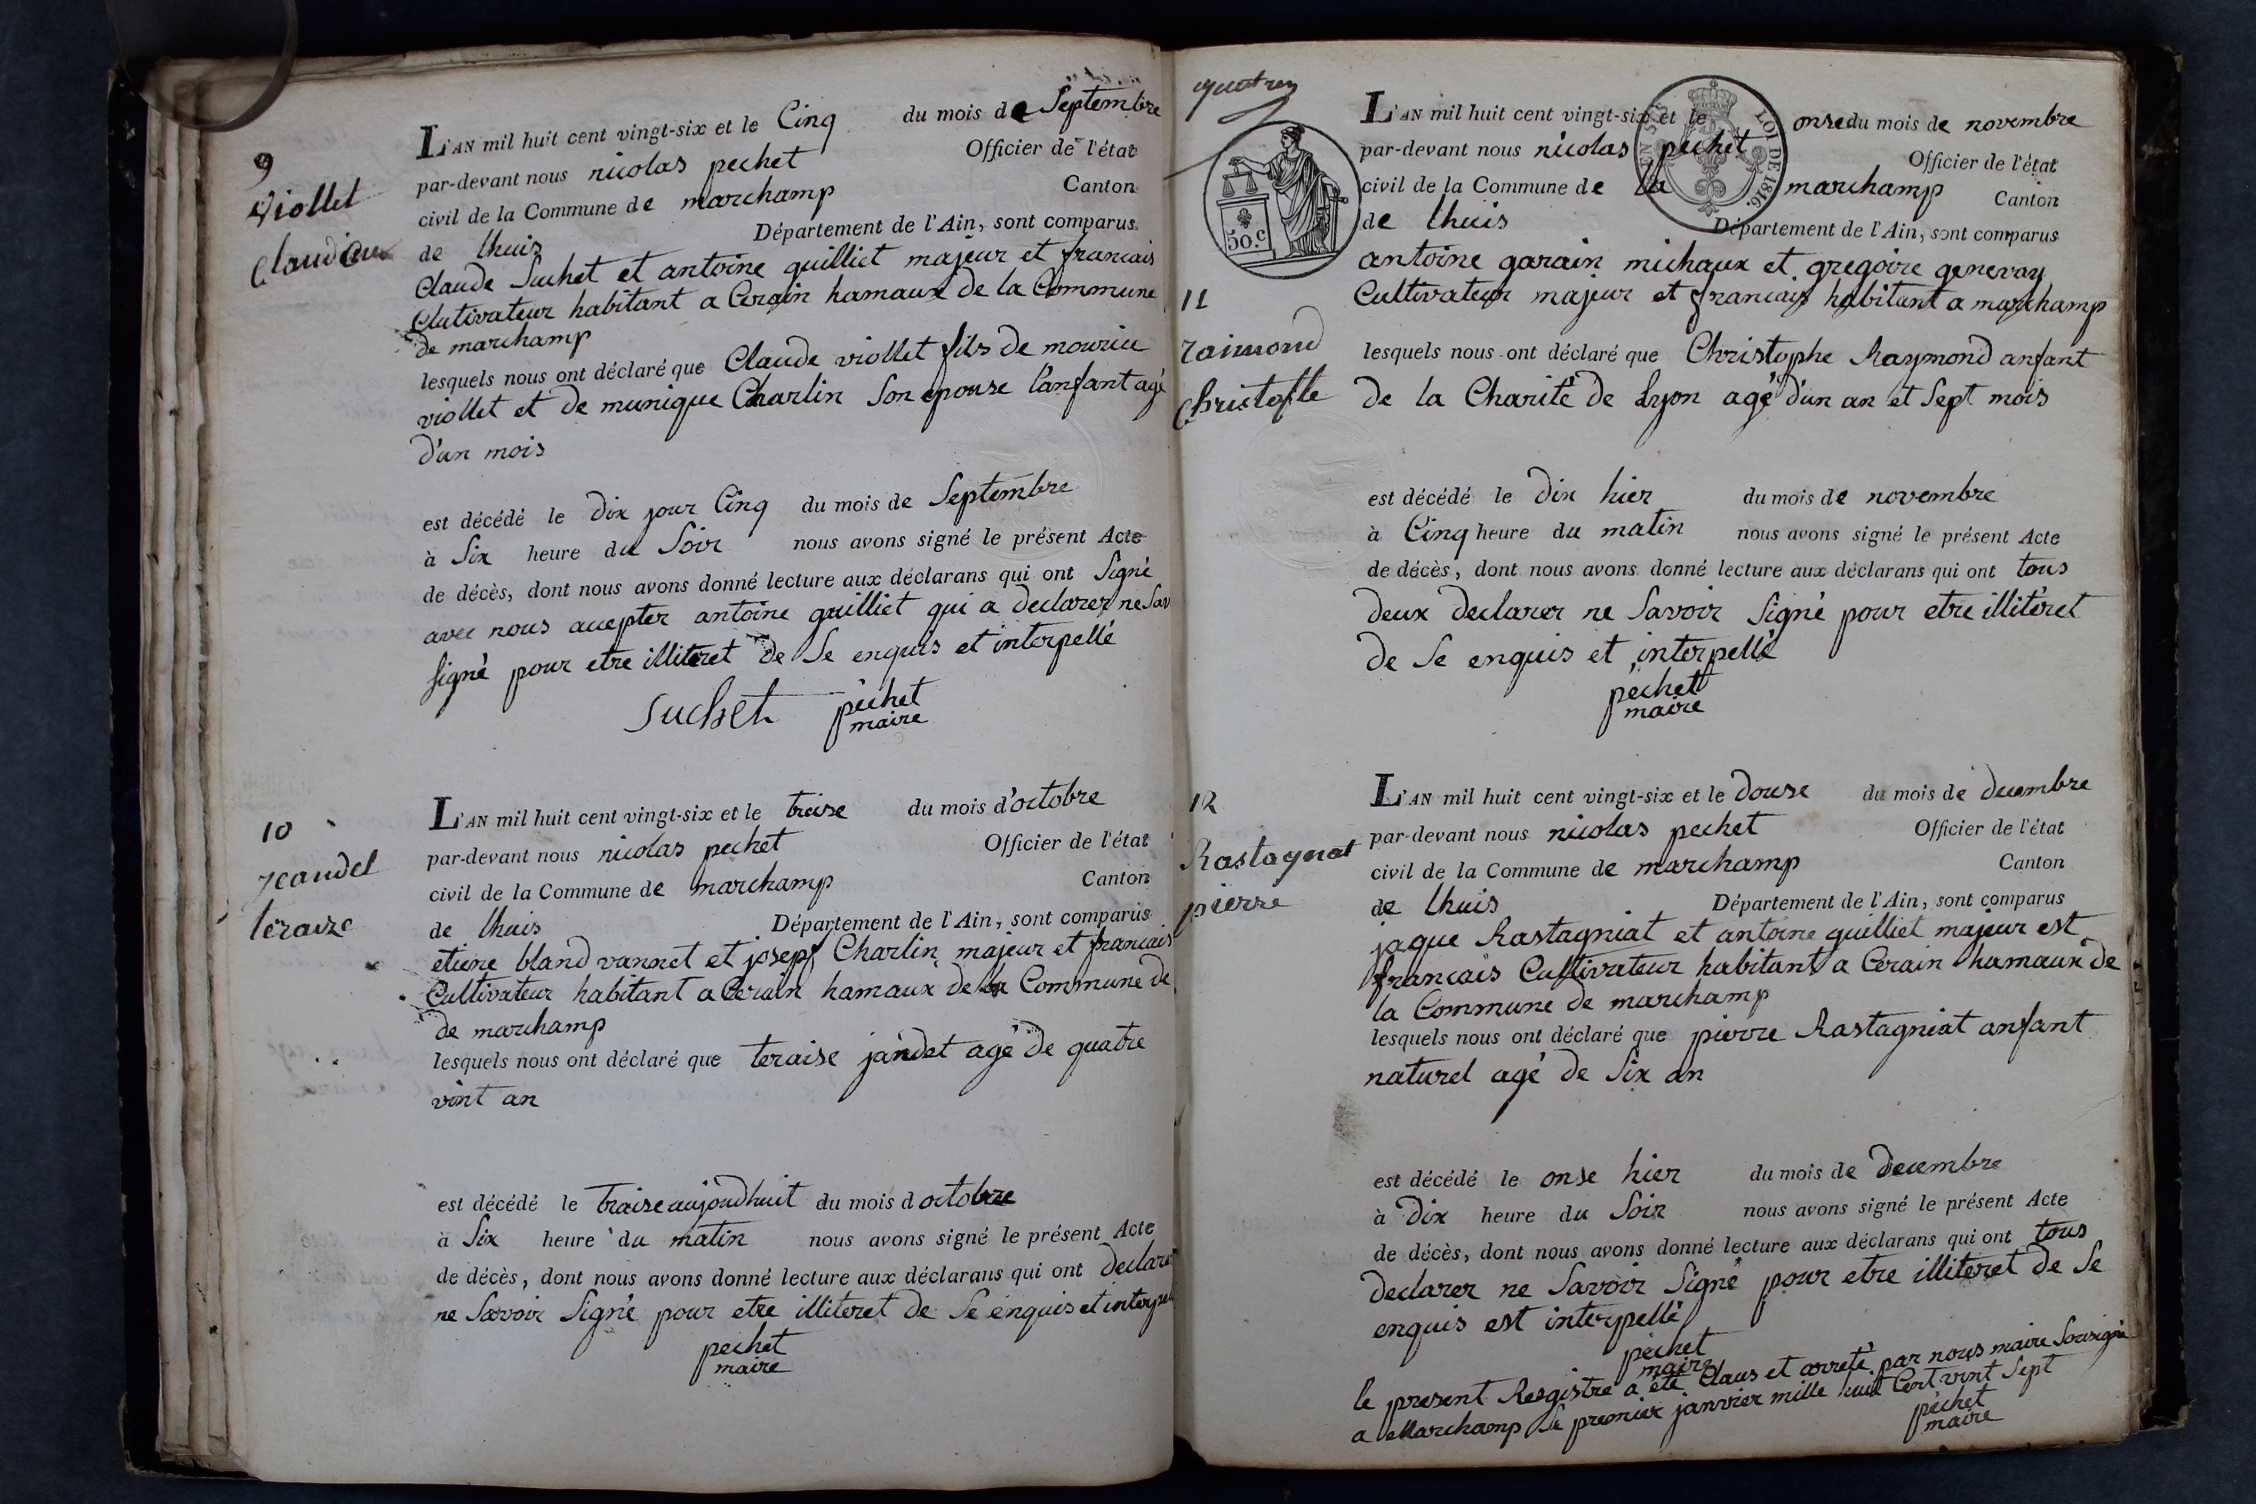 9
Viollet
Claude
L'AN mil huit cent vingt-six et le Cinq du mois de Septembre
par-devant nous nicolas pechet Officier de l'état
civil de la Commune de marchamp Canton
de lhuis Département de l'Ain, sont comparus
Claude Suchet et antoine guilliet majeur et francais
Clutivateur habitant a Cerain hamaux de la Commune
de marchamp
lesquels nous ont déclaré que Claude viollet fils de mourice
viollet et de munique Charlin son epouse l'anfant agé
d'un mois
est décédé le dix jour Cinq du mois de Septembre
à Six heure du Soir nous avons signé le présent Acte
de décès, dont nous avons donné lecture aux déclarans qui ont Signé
avec nous accepter antoine guilliet qui a declarer ne Sav
signé pour etre illiteret de Se enquis et interpellé
Suchet pechet
maire
10
jeandet
teraize
L'AN mil huit cent vingt-six et le treise du mois d'octobre
par-devant nous nicolas pechet Officier de l'état
civil de la Commune de marchamp Canton
de lhuis Département de l'Ain, sont comparus
etiene bland vannet et josepf Charlin majeur et francais
Cultivateur habitant a Cerain hamaux de la Commune de
de marchamp
lesquels nous ont déclaré que teraise jandet agé de quatre
vint an
est décédé le traise aujoudhuit du mois d octobre
à Six heure du matin nous avons signé le présent Acte
de décès, dont nous avons donné lecture aux déclarans qui ont declarer
ne Savoir Signé pour etre illiteret de Se enquis et interpell
pechet
maire
L'AN mil huit cent vingt-six et le onse du mois de novembre
par-devant nous nicolas pechet Officier de l'état
civil de la Commune de la marchamp Canton
de lhuis Département de l'Ain, sont comparus
LOI DE 1816.
50.c
antoine garain michaux et gregoire genevay
Cultivateur majeur et francais habitant a marchamp
11
raimond
Christofle
lesquels nous ont déclaré que Christophe Raymond anfant
de la Charité de Lyon agé d'un an et Sept mois
est décédé le dix hier du mois de novembre
à Cinq heure du matin nous avons signé le présent Acte
de décès, dont nous avons donné lecture aux déclarans qui ont tous
deux declarer ne Savoir Signé pour etre illiteret
de Se enquis et interpellé
pechet
maire
12
Rastagniat
pierre
L'AN mil huit cent vingt-six et le douse du mois de decembre
par-devant nous nicolas pechet Officier de l'état
civil de la Commune de marchamp Canton
de lhuis Département de l'Ain, sont comparus
jaque Rastagniat et antoine guilliet majeur est
francais Cultivateur habitant a Cerain hamaux de
la Commune de marchamp
lesquels nous ont déclaré que pierre Rastagniat anfant
naturel agé de Six an
est décédé le onse hier du mois de decembre
à Dix heure du Soir nous avons signé le présent Acte
de décès, dont nous avons donné lecture aux déclarans qui ont tous
declarer ne Savoir Signé pour etre illiteret de Se
enquis est interpellé
pechet
maire
le present Resgistre a été Claus et arreté par nous maire Sousigné
a Marchamp le premier janvier mille huit Cent vint Sept
pechet
maire